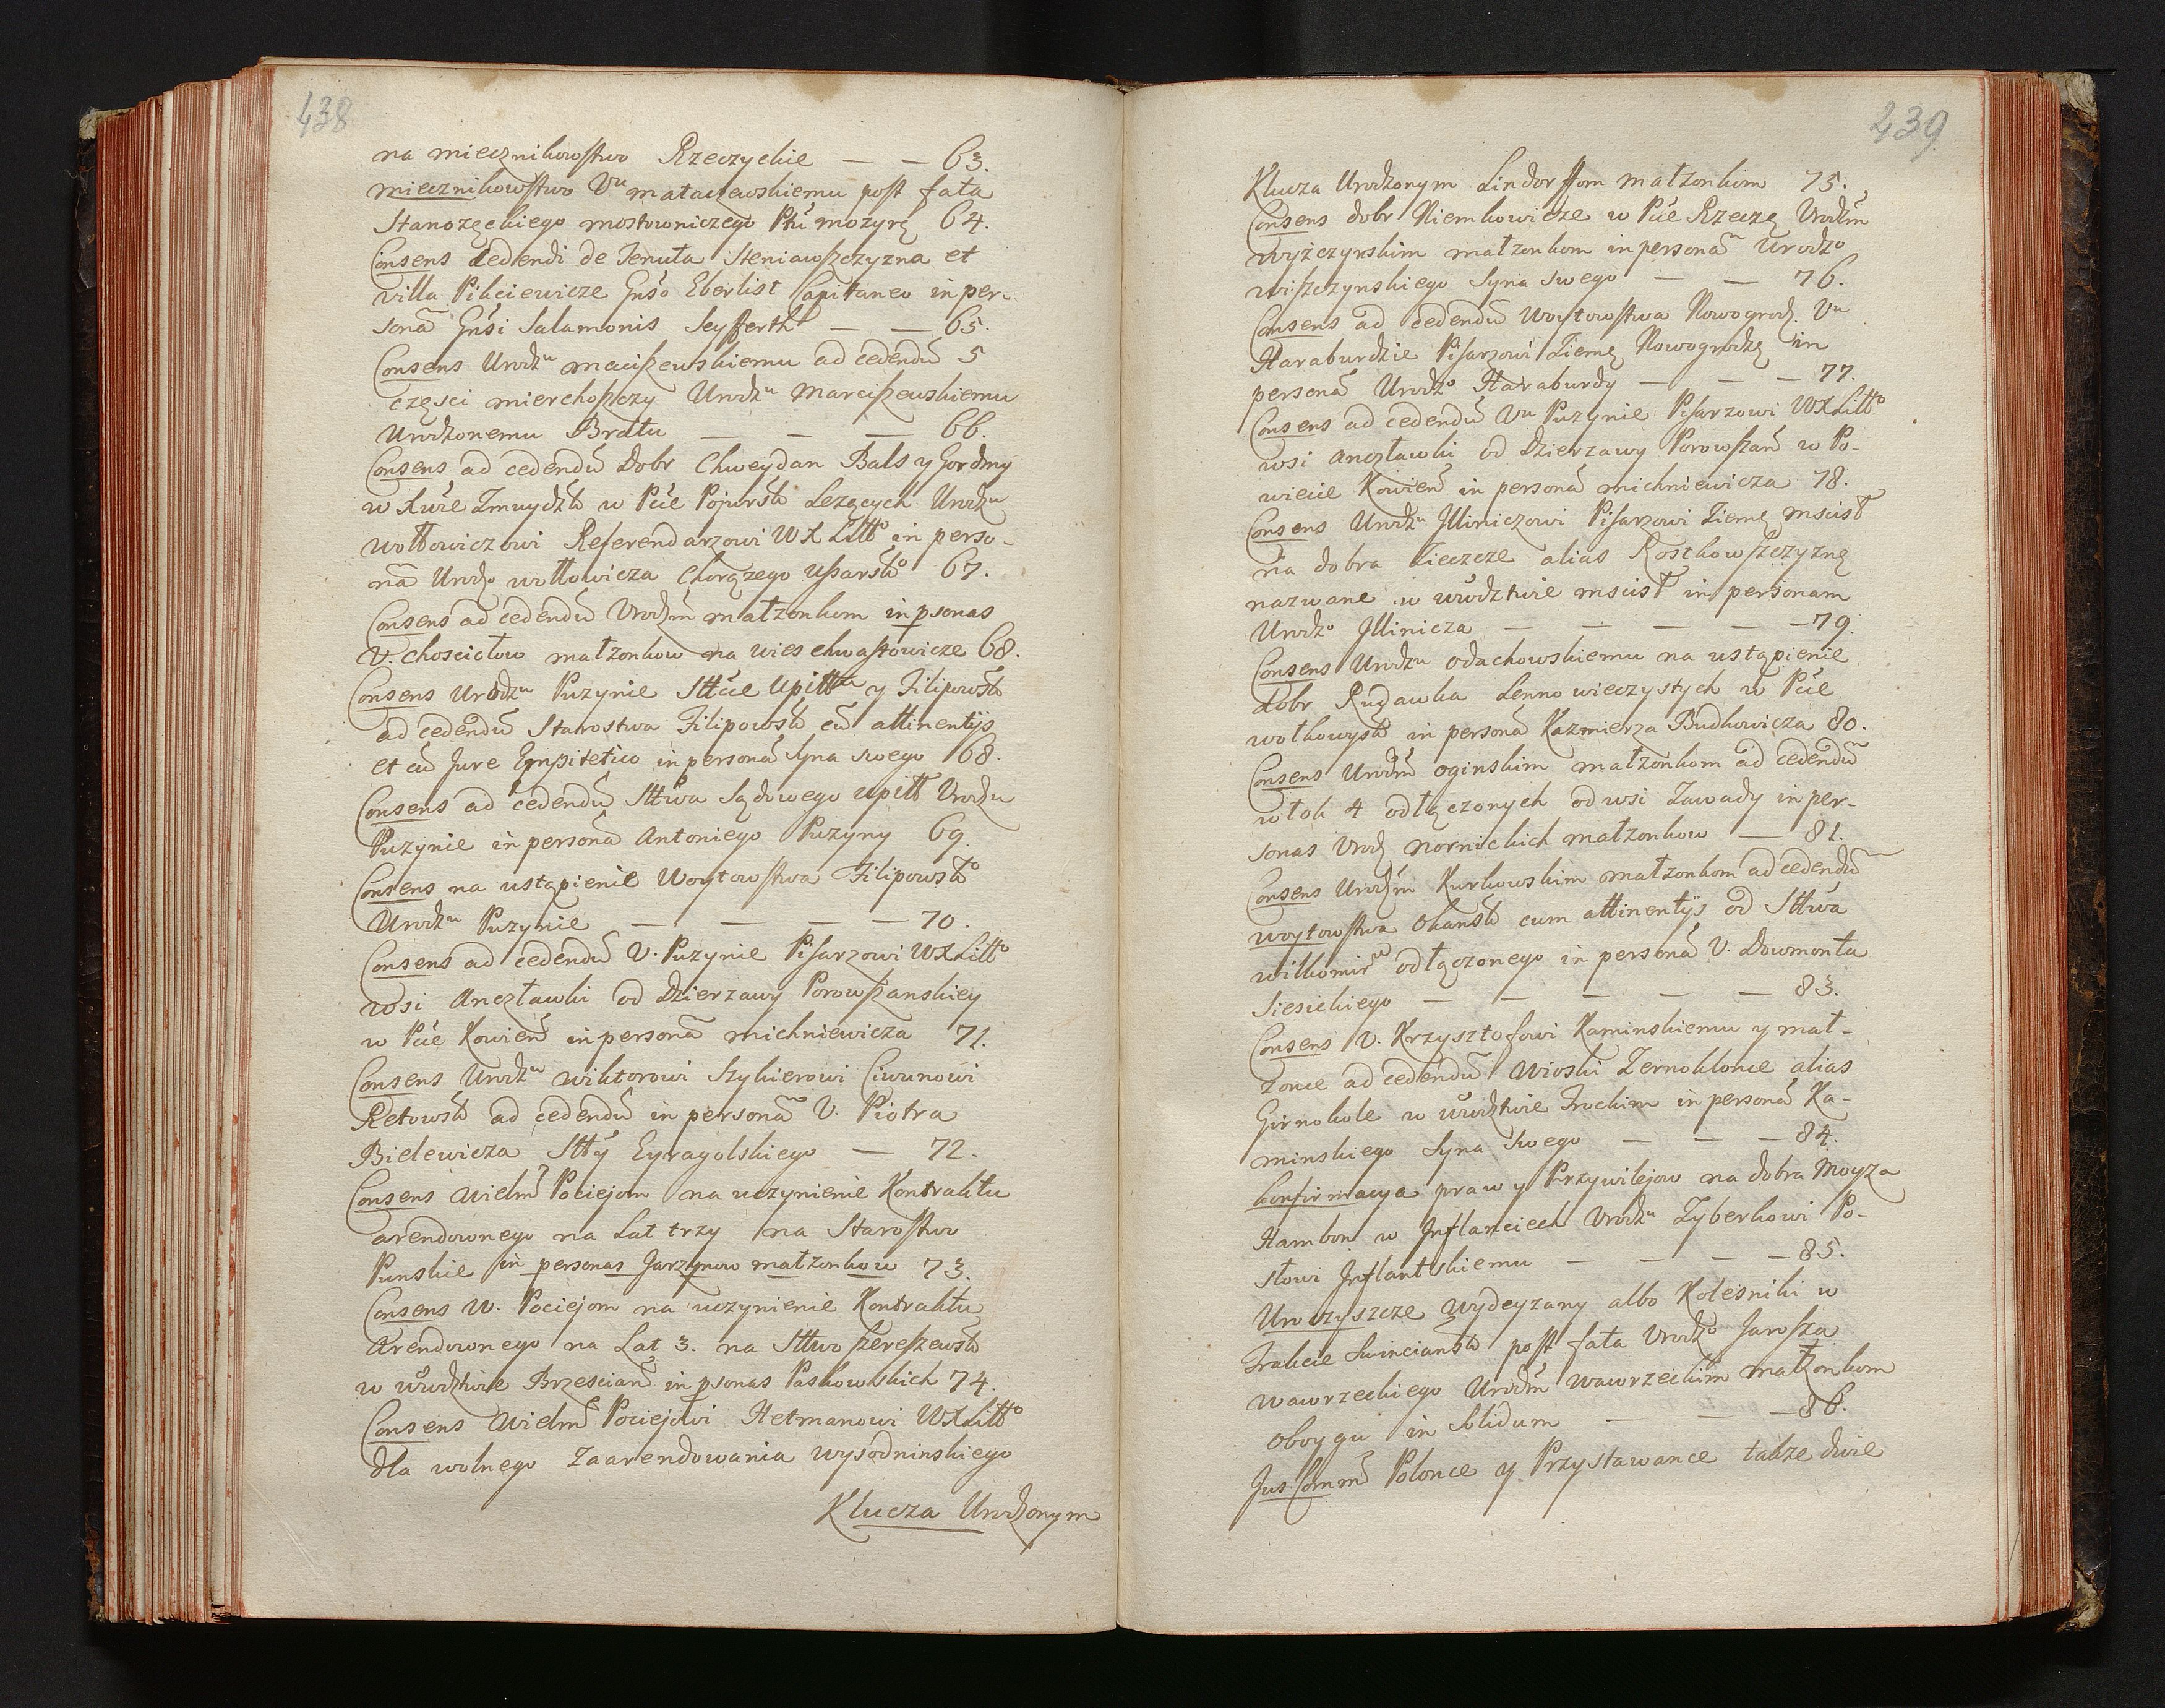 438
na miecznikowstwo Rzeczyckie — — 63.
miecznikowstwo Uu mataczewskiemu post fata
Stanozęckiego mostowniczego Pttu mozyrę 64.
Consens cedendi de Tenuta Steniawszczyzna et
villa Pikciewicze Gnso Eberlist Capitaneo in per-
sonã Gnsi Salamonis Seyfferth — — 65.
Consens Urodzu maciszewskiemu ad cedendũ 5
częsci mierchoszczy Urodzu Marciszewskiemu
Urodzonemu Bratu — — — 66.
Consens ad cedendũ Dobr Chweydan Bals y Gordmy
w Xwie Zmuydzk w Pcie Pojursk Lezących Urodzu
wołłowiczowi Referendarzowi WXLitto in perso-
nã Urodzo wołłowicza Chorązego Ussarsko 67.
Consens ad cedendũ Urodzm małzonkom in psonas
U. chosciałow małzonkow na wies chwastowicze 68.
Consens Urodzu Puzynie Sttcie Upittu y Filipowsk
ad cedendũ Starostwa Filipowsk cũ attinentijs
et cũ Jure Empitetico in personã Syna swego 68.
Consens ad cedendũ Sttwa Sądowego upitt Urodzu
Puzynie in personã Antoniego Puzyny 69.
Consens na ustąpienie Woytowstwa Filipowsko
Urodzu Puzynie — — — — 70.
Consens ad cedendũ U. Puzynie Pisarzowi WXLitto
wsi Anczławki od Dzierzawy Porowszanskiey
w Pcie Kowieñ in personã michniewicza 71.
Consens Urodzu wiktorowi Szykierowi Ciwunowi
Retowsk ad cedendũ in personã U. Piotra
Bielewicza Stty Eyragolskiego — 72.
Consens Wielm Pociejom na uczynienie Kontraktu
arendownego na Lat trzy na Starostwo
Punskie in personas Jarzynow małzonkow 73.
Consens W. Pociejom na uczynienie Kontraktu
Arendownego na Lat 3. na Sttwo szereszewsk
w wwdztwie Brzesciañ in psonas Paskowskich 74.
Consens Wielm Pociejowi Hetmanowi WXLitto
dla wolnego Zaarendowania wysodninskiego
Klucza Urodzonym
439
Klucza Urodzonym Lindorffom małzonkom 75.
Consens dobr Niemkowicze w Pcie Rzeczę Urodzm
wyżczynskim małzonkom in personã Urodzo
wiszczynskiego Syna swego — — 76.
Consens ad cedendũ Woytowstwa Nowogrodz. Uu
Haraburdzie Pisarzowi Ziemę Nowogrodzę in
personã Urodzo Haraburdy — — — 77.
Consens ad cedendũ Uu Puzynie Pisarzowi WXLitto
wsi Anczławki od Dzierzawy Porowszañ w Po-
wiecie Kowieñ in personã michniewicza 78.
Consens Urodzu Jlliniczowi Pisarzowi Ziemę mscisł
na dobra Zieczcze alias Kostkowszczyznę
nazwane w wwdztwie mscisł in personam
Urodzo Jllinicza — — — — — 79.
Consens Urodzu Odachowskiemu na ustąpienie
dobr Rudawka Lenno wieczystych w Pcie
wołkowysk in personã Kazmierza Budkowicza 80.
Consens Urodzm oginskim małzonkom ad cedendũ
włok 4 odłączonych od wsi Zawady in per-
sonas Urodz nornickich małzonkow — 81.
Consens Urodzm Kurkowskim małzonkom ad cedendũ
woytowstwa Okansk cum attinentijs od Sttwa
wilkomir odłączonego in personã U. Dowmonta
Siesickiego — — — — — 83.
Consens U. Krzysztofowi Kaminskiemu y mał-
zonce ad cedendũ Wioski Zernoklonie alias
Girnokole w wwdztwie Trockim in personã Ka-
minskiego Syna swego — — — 84.
konfirmacya praw y Przywilejow na dobra Moyza
Hambon w Jnflanciech Urodzu Zyberkowi Po-
słowi Jnflantskiemu — — — — 85.
Uroczyszcze Wydeyzany albo Kolesniki w
Trakcie Swinciansk post fata Urodzo Jarosza
wawrzeckiego Urodzm wawrzeckim małzonkom
oboygu in solidum — — — 86.
Jus Comm Polonce y Przystawance takze dwie